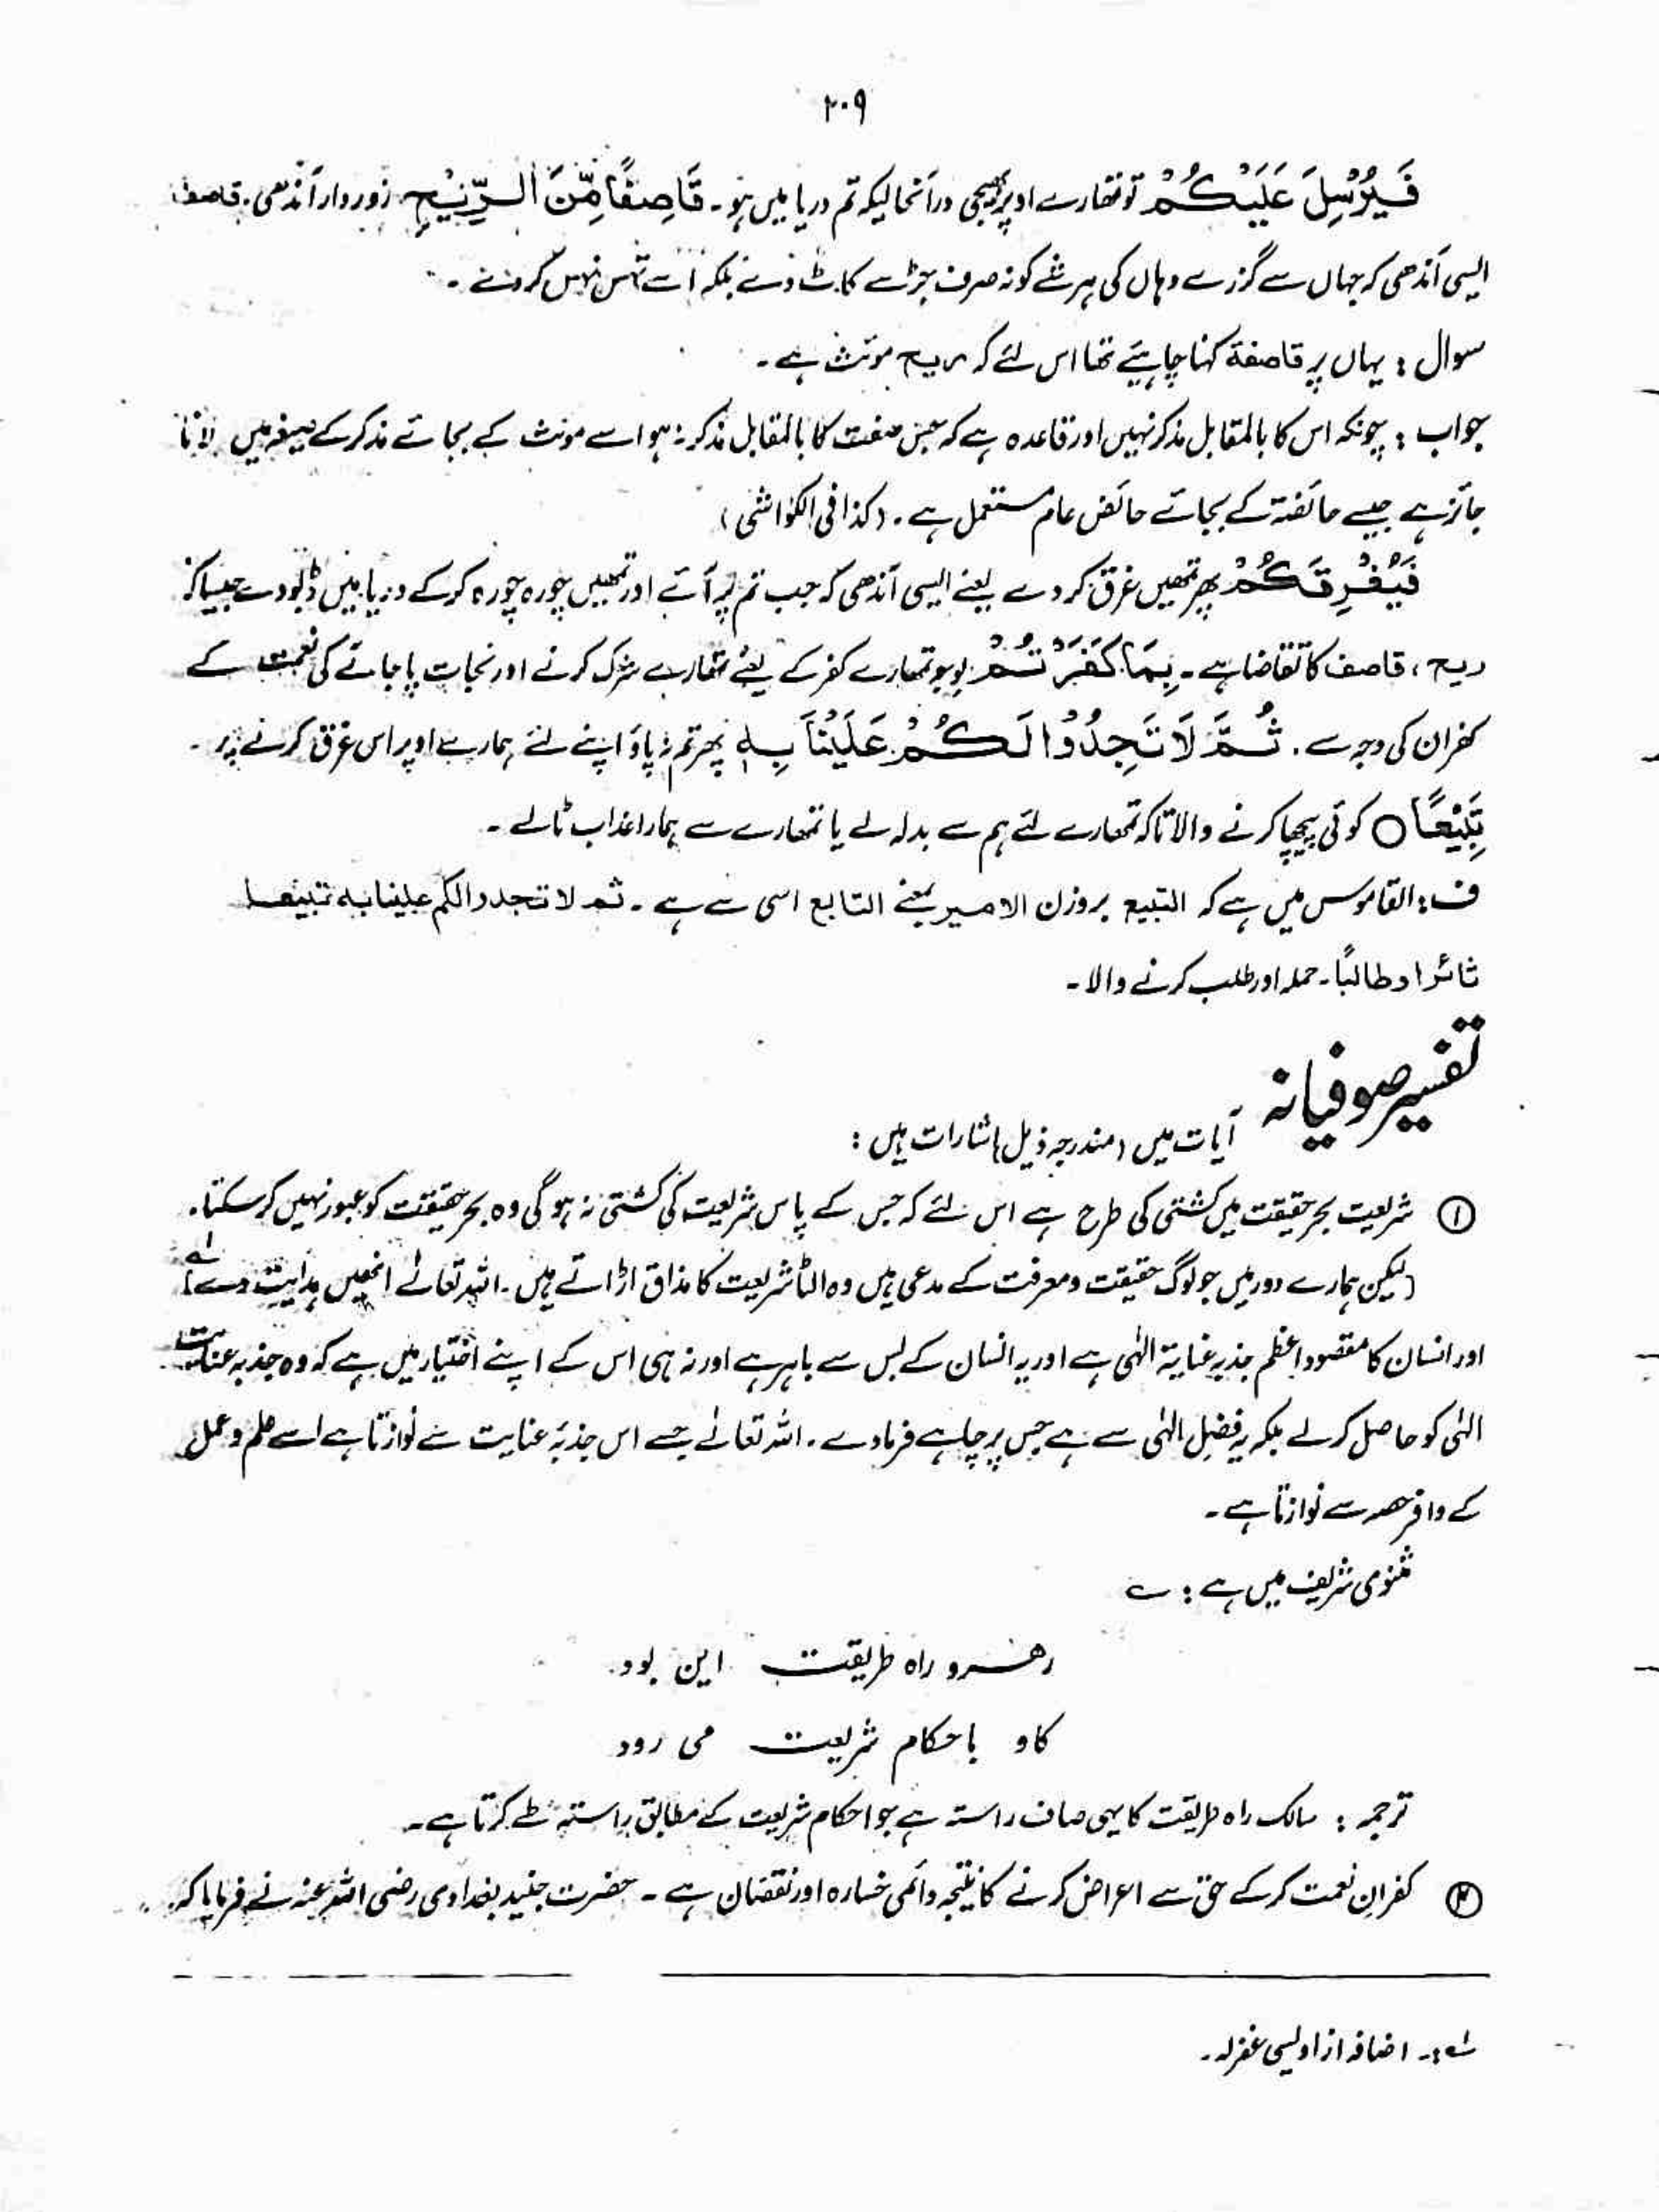 ۲۰۹
فَيُرْسِلَ عَلَيْكُمْ تو تمھارے اوپر بھیجی درآنحالیکہ تم دریا میں ہو۔ قَاصِفًا مِّنَ الرِّيْحِ زوردار آندھی۔ قاصف
ایسی آندھی کہ جہاں سے گزرے وہاں کی ہر شے کو نہ صرف جڑ سے کاٹ دے بلکہ اسے تہس نہس کر دے۔
سوال : یہاں پر قاصفۃ کہنا چاہئیے تھا اس لئے کہ ریح مونث ہے۔
جواب : چونکہ اس کا بالمقابل مذکر نہیں اور قاعدہ ہے کہ جس صفت کا بالمقابل مذکر نہ ہو اسے مونث کے بجائے مذکر کے صیغہ میں لانا
جائز ہے جیسے حائضۃ کے بجائے حائض عام مستعمل ہے۔ (کذا فی الکواشی)
فَيُغْرِقَكُمْ پھر تمھیں غرق کر دے یعنے ایسی آندھی کہ جب تم پر آئے اور تمھیں چورہ چورہ کر کے دریا میں ڈبو دے جیسا کہ
ریح ، قاصف کا تقاضا ہے۔ بِمَا كَفَرْتُمْ بوجو تمھارے کفر کے یعنے تمھارے شرک کرنے اور نجات پا جانے کی نعمت کے
کفران کی وجہ سے۔ ثُمَّ لَا تَجِدُوْا لَكُمْ عَلَيْنَا بِهٖ پھر تم نہ پاؤ اپنے لئے ہمارے اوپر اس غرق کرنے پر۔
تَبِيْعًا ○ کوئی پیچھا کرنے والا تاکہ تمھارے لئے ہم سے بدلہ لے یا تمھارے سے ہمارا عذاب ٹالے۔
ف : القاموس میں ہے کہ التبیع بروزن الامیر بمعنے التابع اسی سے ہے۔ ثم لا تجدوا لکم علینا بہ تبیعا
ثائرا و طالبًا۔ حملہ اور طلب کرنے والا۔
تفسیر صوفیانہ
آیات میں (مندرجہ ذیل) اشارات ہیں :
① شریعت بحر حقیقت میں کشتی کی طرح ہے اس لئے کہ جس کے پاس شریعت کی کشتی نہ ہو گی وہ بحر حقیقت کو عبور نہیں کر سکتا۔
(لیکن ہمارے دور میں جو لوگ حقیقت و معرفت کے مدعی ہیں وہ الٹا شریعت کا مذاق اڑاتے ہیں۔ اللہ تعالٰے انھیں ہدایت دے) ؎۱
اور انسان کا مقصود اعظم جذبہ عنایۃ الٰہی ہے اور یہ انسان کے بس سے باہر ہے اور نہ ہی اس کے اپنے اختیار میں ہے کہ وہ جذبہ عنایت
الٰہی کو حاصل کر لے بلکہ یہ فضل الٰہی سے ہے جس پر چاہے فرما دے۔ اللہ تعالٰے جسے اس جذبۂ عنایت سے نوازتا ہے اسے علم و عمل
کے وافر حصہ سے نوازتا ہے۔
مثنوی شریف میں ہے : ؎
رھرو راہ طریقت این بود
کاو باحکام شریعت می رود
ترجمہ : سالک راہ طریقت کا یہی صاف راستہ ہے جو احکام شریعت کے مطابق راستہ طے کرتا ہے۔
② کفرانِ نعمت کر کے حق سے اعراض کرنے کا نتیجہ دائمی خسارہ اور نقصان ہے۔ حضرت جنید بغدادی رضی اللہ عنہ نے فرمایا کہ
؎۱:۔ اضافہ از اویسی غفرلہ۔